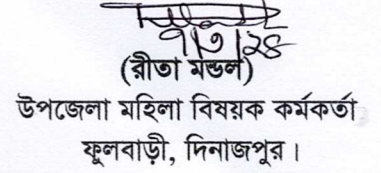 ৭|৩|২৪
(রীতা মন্ডল)
উপজেলা মহিলা বিষয়ক কর্মকর্তা
ফুলবাড়ী, দিনাজপুর।